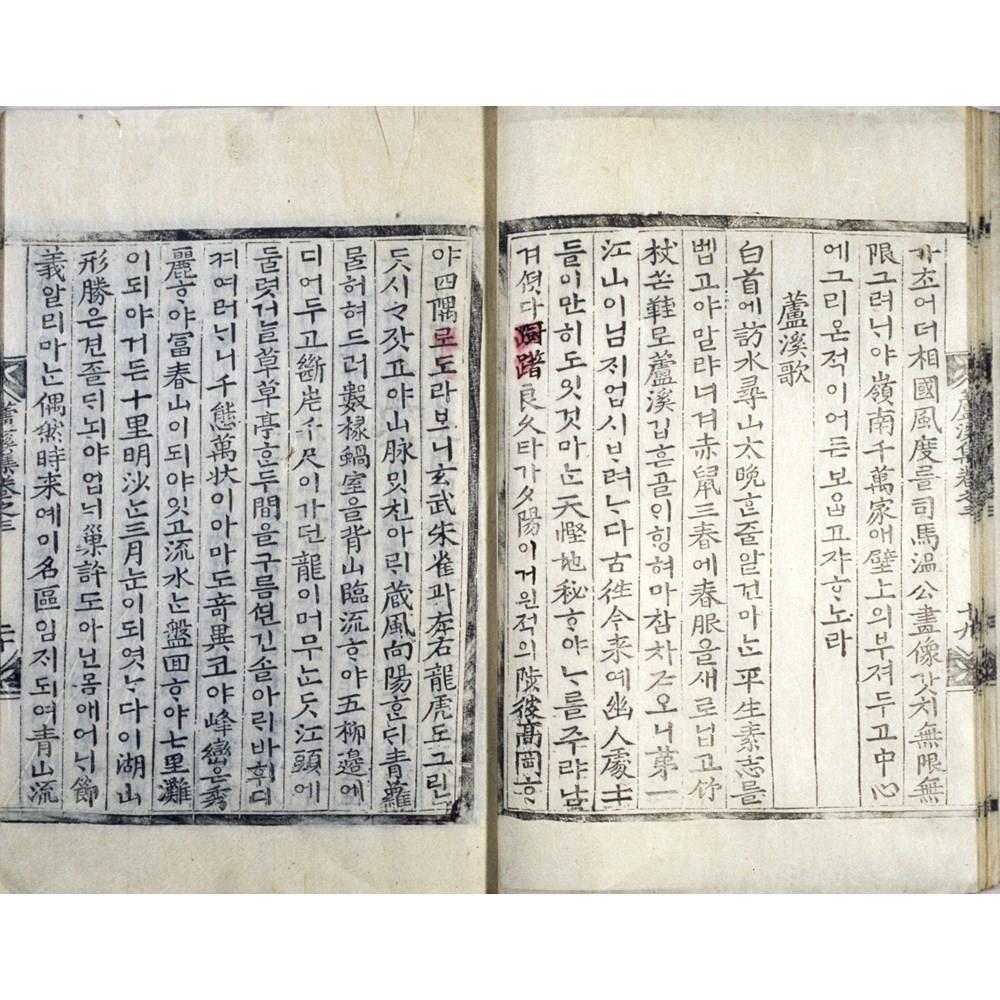 가죠어뎌相國風度를司馬溫公畫像갓치無限無
限그려ᄂᆡ야嶺南千萬家애壁上의부져두고中心
에그리온적이어든보ᄋᆞᆸ고쟈ᄒᆞ노라
蘆溪歌
白首에訪水尋山太晩ᄒᆞᆫ줄알건마ᄂᆞᆫ平生素志를
벱고야말랴녀겨赤鼠三春에春服을새로닙고竹
杖芒鞋로蘆溪깁흔골이힝혀마참차ᄌᆞ오니第一
江山이님ᄌᆡ업시ᄇᆞ려ᄂᆞ다古徃今来예幽人處士
들이만히도잇것마ᄂᆞᆫ天慳地秘ᄒᆞ야ᄂᆞ를주랴남
겨셧다躊躇良久타가夕陽이거읜적의陟彼高岡ᄒᆞ
야四隅로도라보니玄武朱雀과左右龍虎도그린
ᄃᆞ시ᄀᆞ잣고야山脉ᄆᆡ친아ᄅᆡ藏風向陽ᄒᆞᆫᄃᆡ青蘿
를허혀드러數椽蝸室을背山臨流ᄒᆞ야五柳邊에
디어두고斷崖千尺이가던龍이머무ᄂᆞᆫᄃᆞᆺ江頭에
둘럿거ᄂᆞᆯ草草亭ᄒᆞᆫ두間을구름ᄯᅴᆫ긴솔아ᄅᆡ바휘디
켜여러ᄂᆡ니千態萬状이아마도奇異코야峰巒은秀
麗ᄒᆞ야富春山이되야잇고流水ᄂᆞᆫ盤回ᄒᆞ야七里灘
이되야거든十里明沙ᄂᆞᆫ三月눈이되엿ᄂᆞ다이湖山
形勝은견졸ᄃᆡ뇌야업ᄂᆡ巢許도아닌몸애어ᄂᆡ節
義알리마ᄂᆞᆫ偶然時来예이名區임ᄌᆡ되여青山流
蘆溪集卷之三
二十